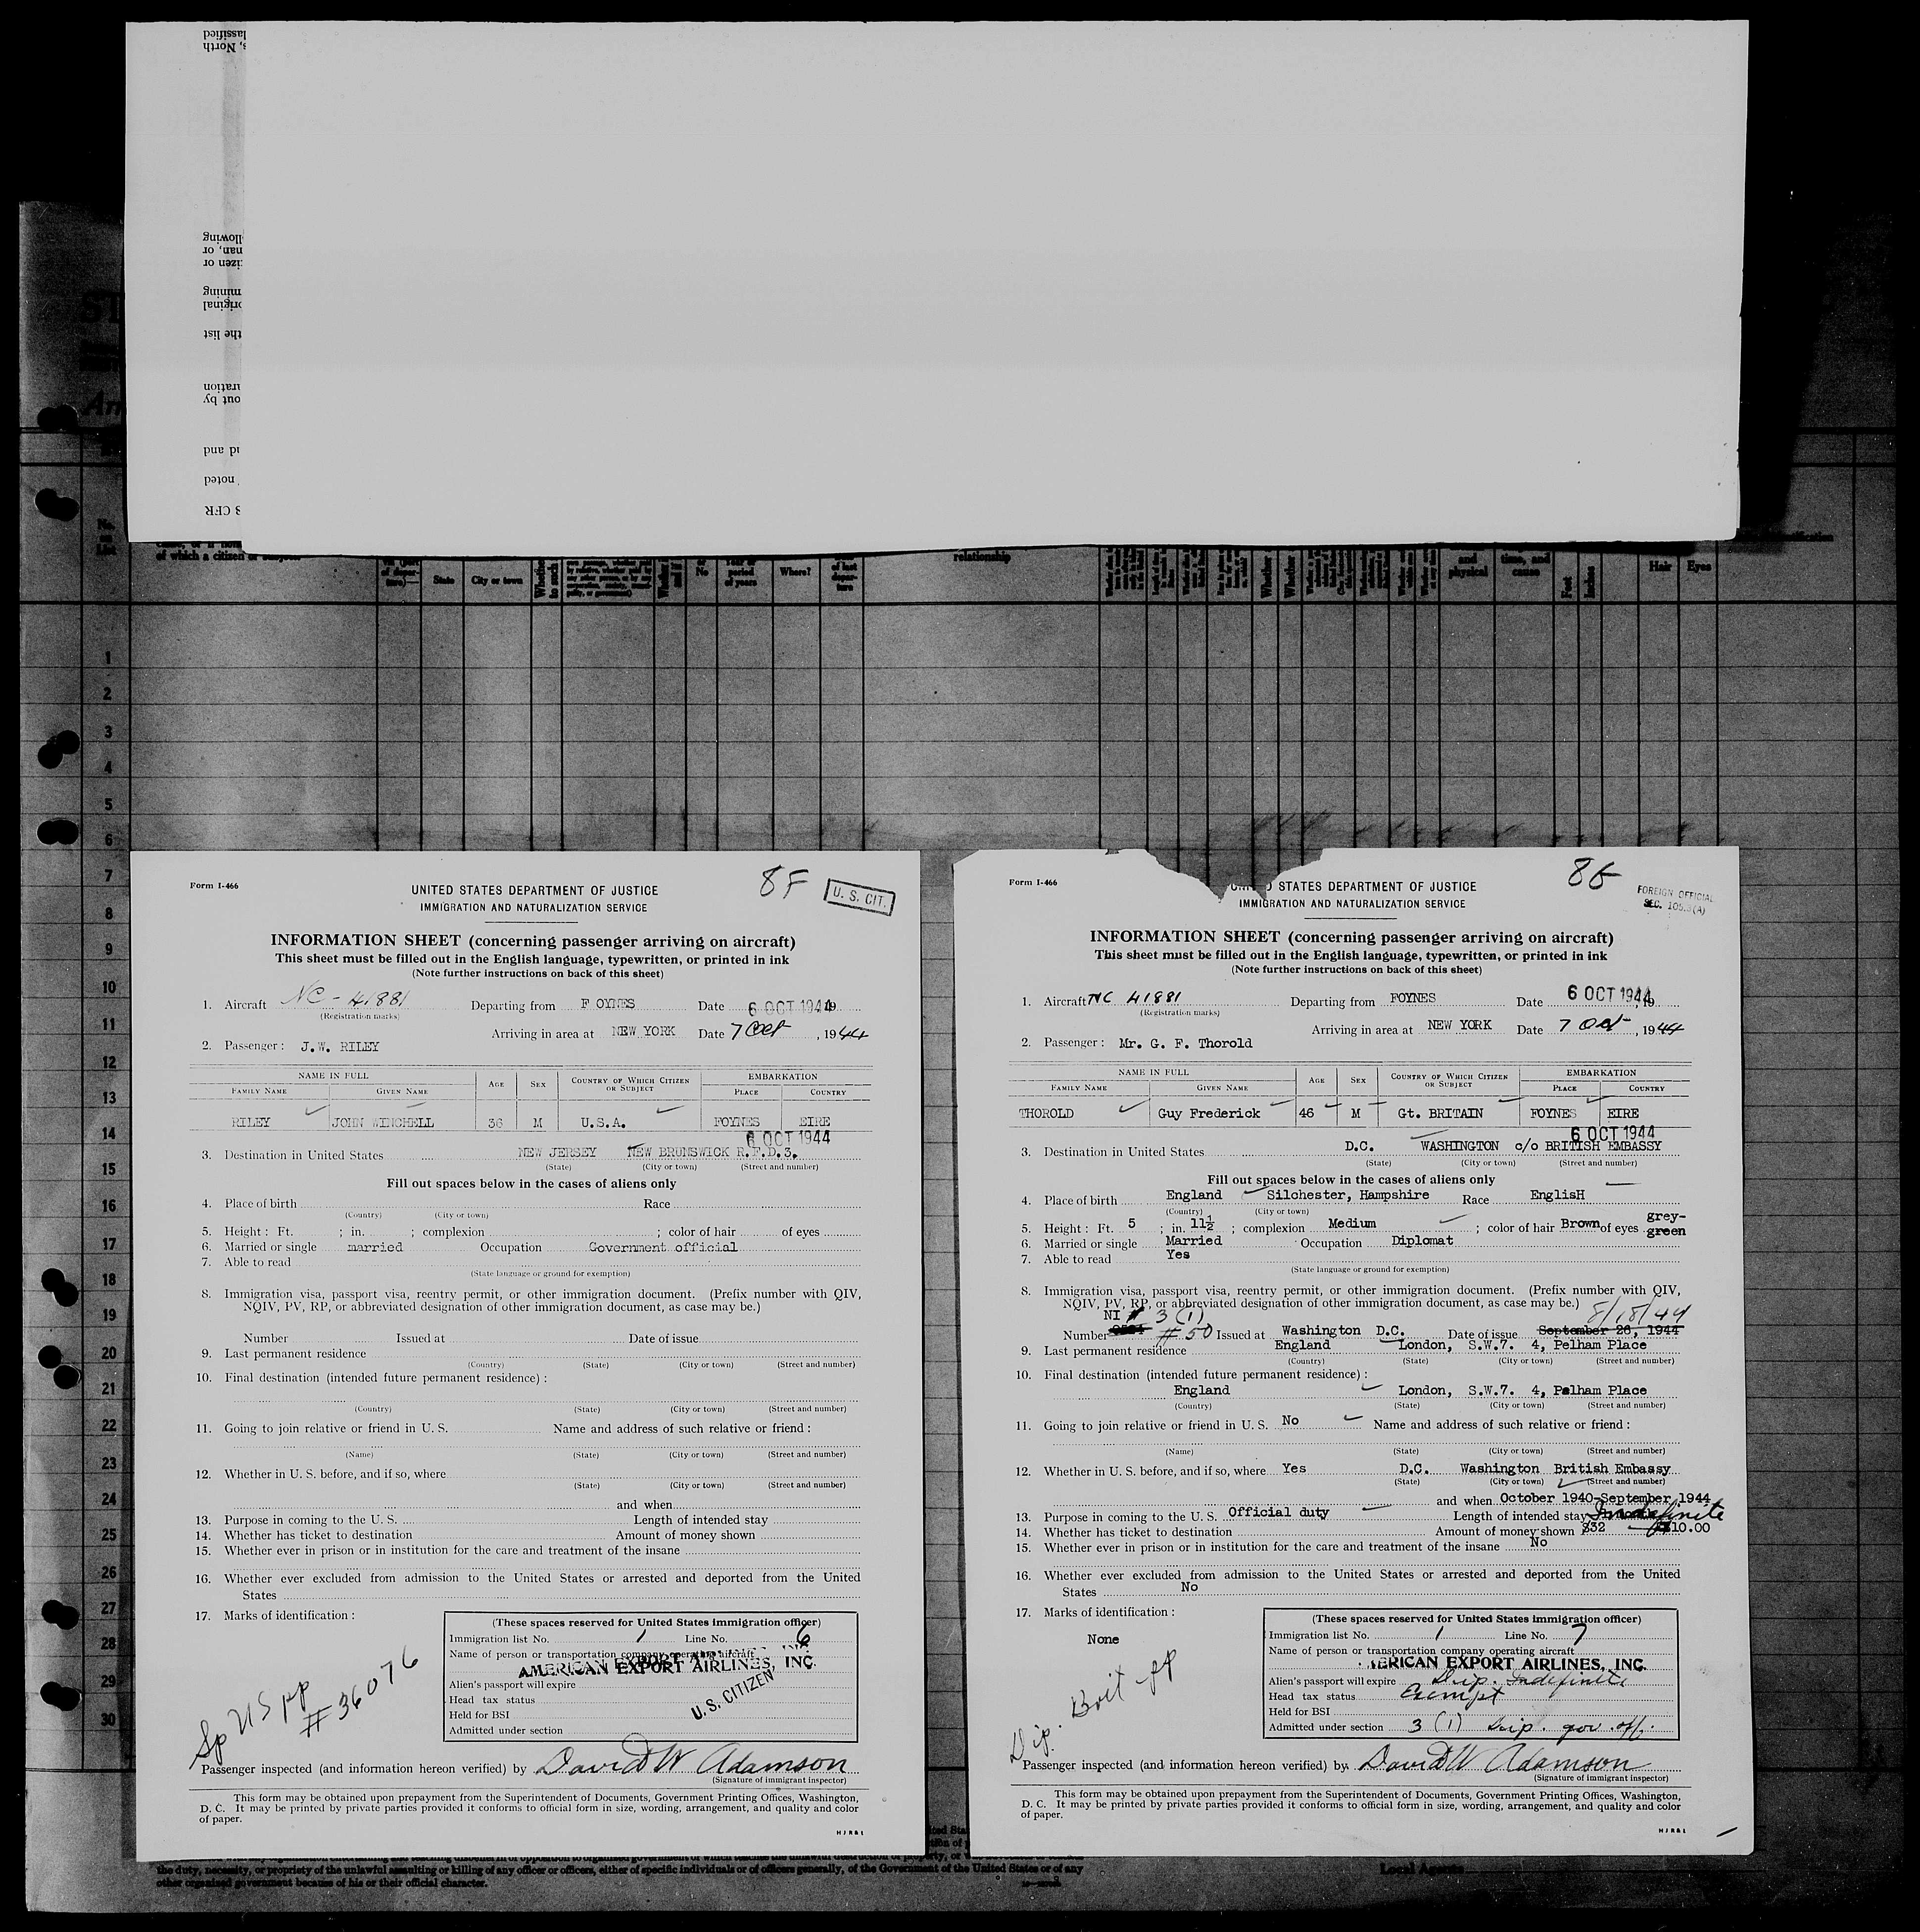 No.
on
List
of which a citizen or
relationship
State
City or town
Whether
No
period
of years
Where?
of last
depar-
ture
Whether
Whether
and
physical
time, and
cause
Feet
Inches
Hair
Eyes
1
2
3
4
5
6
7
8
9
10
11
12
13
14
15
16
17
18
19
20
21
22
23
24
25
26
27
28
29
30
Form I-466
8F
U. S. CIT.
UNITED STATES DEPARTMENT OF JUSTICE
IMMIGRATION AND NATURALIZATION SERVICE
INFORMATION SHEET (concerning passenger arriving on aircraft)
This sheet must be filled out in the English language, typewritten, or printed in ink
(Note further instructions on back of this sheet)
1. Aircraft NC - 41881 Departing from F OYNES Date 6 OCT 1944 19
(Registration marks)
Arriving in area at NEW YORK Date 7 Oct , 1944
2. Passenger : J.W. RILEY
NAME IN FULL AGE SEX COUNTRY OF WHICH CITIZEN OR SUBJECT EMBARKATION
FAMILY NAME GIVEN NAME PLACE COUNTRY
RILEY JOHN WINCHELL 36 M U.S.A. FOYNES EIRE
6 OCT 1944
3. Destination in United States NEW JERSEY NEW BRUNSWICK R.F.D.3.
(State) (City or town) (Street and number)
Fill out spaces below in the cases of aliens only
4. Place of birth Race
(Country) (City or town)
5. Height : Ft. ; in. ; complexion ; color of hair of eyes
6. Married or single married Occupation Government official
7. Able to read
(State language or ground for exemption)
8. Immigration visa, passport visa, reentry permit, or other immigration document. (Prefix number with QIV,
NQIV, PV, RP, or abbreviated designation of other immigration document, as case may be.)
Number Issued at Date of issue
9. Last permanent residence
(Country) (State) (City or town) (Street and number)
10. Final destination (intended future permanent residence) :
(Country) (State) (City or town) (Street and number)
11. Going to join relative or friend in U. S. Name and address of such relative or friend :
(Name) (State) (City or town) (Street and number)
12. Whether in U. S. before, and if so, where
(State) (City or town) (Street and number)
and when
13. Purpose in coming to the U. S. Length of intended stay
14. Whether has ticket to destination Amount of money shown
15. Whether ever in prison or in institution for the care and treatment of the insane
16. Whether ever excluded from admission to the United States or arrested and deported from the United
States
17. Marks of identification :
Sp US pp
# 36076
(These spaces reserved for United States immigration officer)
Immigration list No. 1 Line No. 6
Name of person or transportation company operating aircraft
AMERICAN EXPORT AIRLINES, INC.
Alien's passport will expire
Head tax status
U. S. CITIZEN
Held for BSI
Admitted under section
Passenger inspected (and information hereon verified) by David W Adamson
(Signature of immigrant inspector)
This form may be obtained upon prepayment from the Superintendent of Documents, Government Printing Offices, Washington,
D. C. It may be printed by private parties provided it conforms to official form in size, wording, arrangement, and quality and color
of paper.
H J R & L
Form I-466
8G
FOREIGN OFFICIAL
SEC. 105.3(A)
STATES DEPARTMENT OF JUSTICE
IMMIGRATION AND NATURALIZATION SERVICE
INFORMATION SHEET (concerning passenger arriving on aircraft)
This sheet must be filled out in the English language, typewritten, or printed in ink
(Note further instructions on back of this sheet)
1. Aircraft NC 41881 Departing from FOYNES Date 6 OCT 1944, 19
(Registration marks)
Arriving in area at NEW YORK Date 7 Oct , 1944
2. Passenger : Mr. G. F. Thorold
NAME IN FULL AGE SEX COUNTRY OF WHICH CITIZEN OR SUBJECT EMBARKATION
FAMILY NAME GIVEN NAME PLACE COUNTRY
THOROLD Guy Frederick 46 M Gt. BRITAIN FOYNES EIRE
6 OCT 1944
3. Destination in United States D.C. WASHINGTON c/o BRITISH EMBASSY
(State) (City or town) (Street and number)
Fill out spaces below in the cases of aliens only
4. Place of birth England Silchester, Hampshire Race EnglisH
(Country) (City or town)
5. Height : Ft. 5 ; in. 11½ ; complexion Medium ; color of hair Brown of eyes grey-green
6. Married or single Married Occupation Diplomat
7. Able to read Yes
(State language or ground for exemption)
8. Immigration visa, passport visa, reentry permit, or other immigration document. (Prefix number with QIV,
NQIV, PV, RP, or abbreviated designation of other immigration document, as case may be.)
NI 3 (1) 8/18/44
Number # 50 Issued at Washington D.C. Date of issue September 26, 1944
9. Last permanent residence England London, S.W.7. 4, Pelham Place
(Country) (State) (City or town) (Street and number)
10. Final destination (intended future permanent residence) :
England London, S.W.7. 4, Pelham Place
(Country) (State) (City or town) (Street and number)
11. Going to join relative or friend in U. S. No Name and address of such relative or friend :
(Name) (State) (City or town) (Street and number)
12. Whether in U. S. before, and if so, where Yes D.C. Washington British Embassy
(State) (City or town) (Street and number)
and when October 1940-September 1944
13. Purpose in coming to the U. S. Official duty Length of intended stay Indefinite
14. Whether has ticket to destination Amount of money shown $32 £10.00
15. Whether ever in prison or in institution for the care and treatment of the insane No
16. Whether ever excluded from admission to the United States or arrested and deported from the United
States No
17. Marks of identification :
None
Dip. Brit pp
(These spaces reserved for United States immigration officer)
Immigration list No. 1 Line No. 7
Name of person or transportation company operating aircraft
ERICAN EXPORT AIRLINES, INC.
Alien's passport will expire Dip. Indefinite
Head tax status Exempt
Held for BSI
Admitted under section 3 (1) Dip. gov. off.
Passenger inspected (and information hereon verified) by David W Adamson
(Signature of immigrant inspector)
This form may be obtained upon prepayment from the Superintendent of Documents, Government Printing Offices, Washington,
D. C. It may be printed by private parties provided it conforms to official form in size, wording, arrangement, and quality and color
of paper.
H J R & L
the duty, necessity, or propriety of the unlawful assaulting or killing of any officer or officers, either of specific individuals or of officers generally, of the Government of the United States or of any
other organized government because of his or their official character.
Local Agents